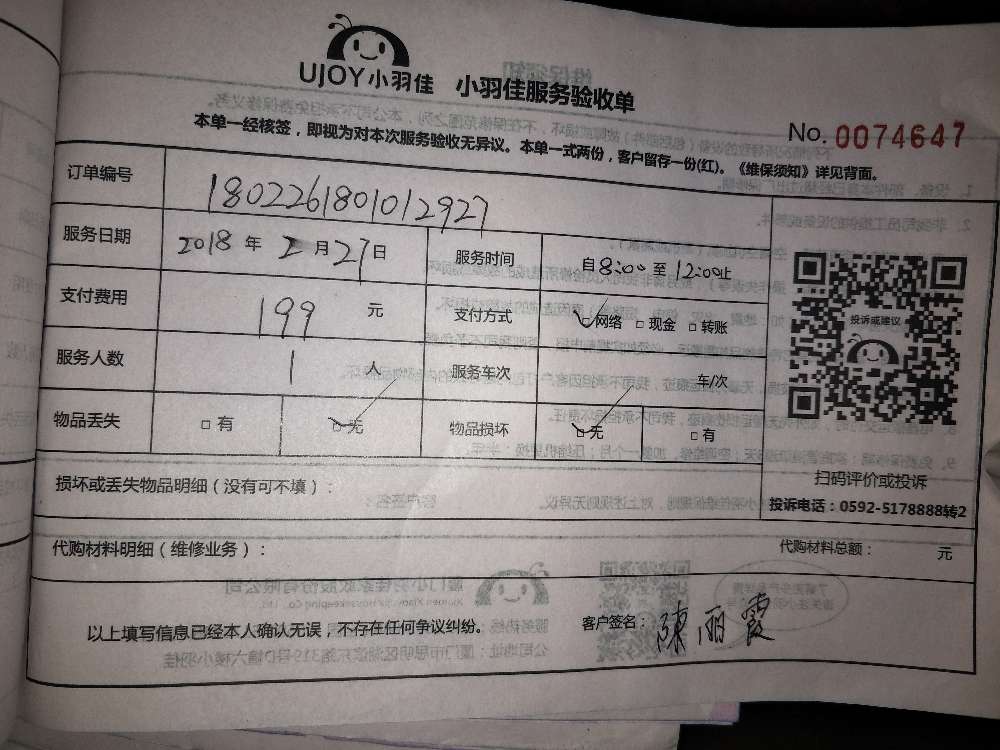 UJOY小羽佳 小羽佳服务验收单
本单一经核签，即视为对本次服务验收无异议。本单一式两份，客户留存一份(红)。《维保须知》详见背面。
No. 0074647
订单编号 180226181012927
服务日期 2018年2月27日 服务时间 自8:00至12:00止
支付费用 199 元 支付方式 网络 □现金 □转账
服务人数 1 人 服务车次 车/次
物品丢失 □有 □无 物品损坏 □无 □有
投诉或建议
扫码评价或投诉
投诉电话：0592-5178888转2
损坏或丢失物品明细（没有可不填）：
代购材料明细（维修业务）： 代购材料总额： 元
以上填写信息已经本人确认无误，不存在任何争议纠纷。 客户签名：陈丽霞